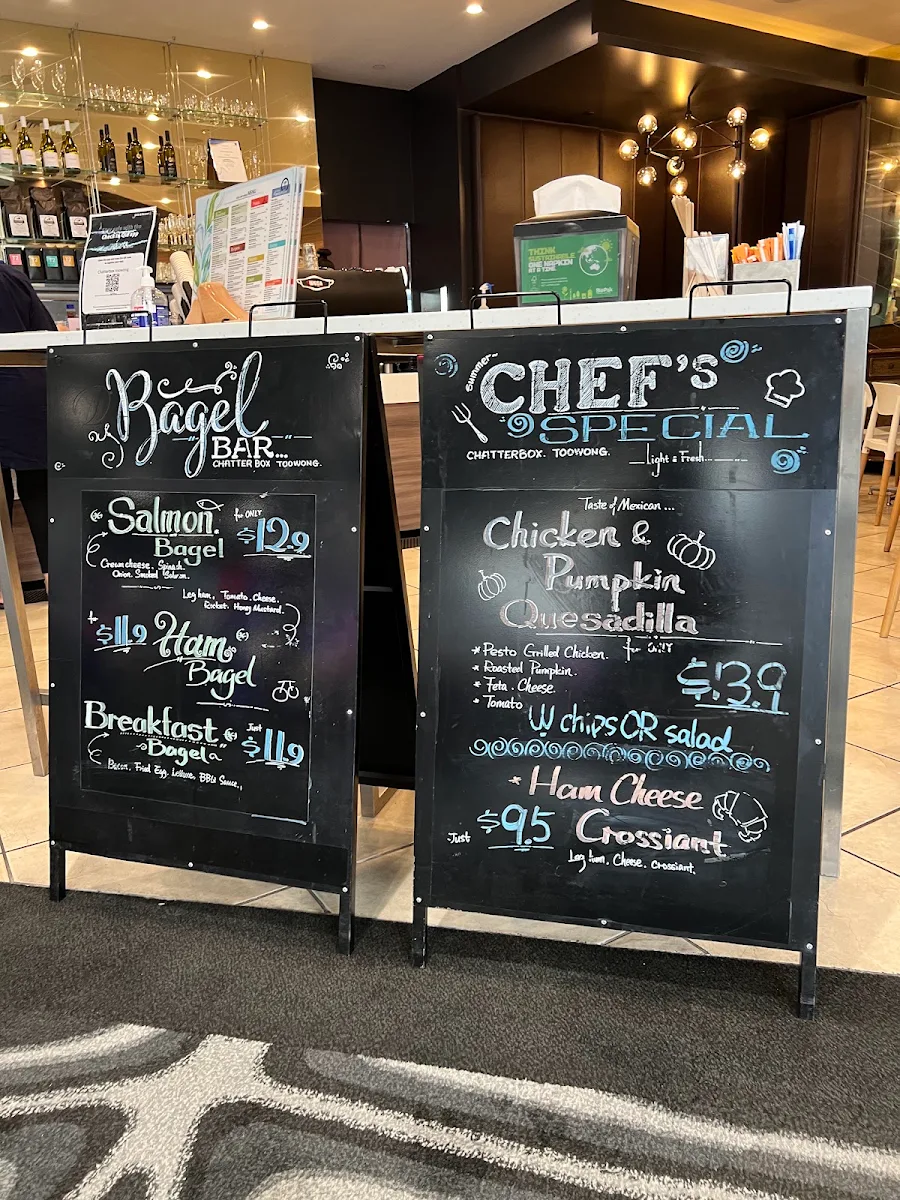 THINK
SUSTAINABLE
ONE NAPKIN
AT A TIME.
BioPak
Check In Qld app
Bagel
BAR...
CHATTER BOX TOOWONG.
Salmon.
Bagel
for ONLY
$12.9
Cream cheese. Spinash.
Onion. Smoked Salmon.
Leg ham, Tomato. Cheese.
Rocket. Honey Mustard.
$11.9
Ham
Bagel
Breakfast
Bagel
Just
$11.9
Bacon, Fried Egg, Lettuce, BBQ Sauce,
Summer~
CHEF'S
SPECIAL
CHATTERBOX. TOOWONG.
Light & Fresh...
Taste of Mexican ...
Chicken &
Pumpkin
Quesadilla
* Pesto Grilled Chicken.
* Roasted Pumpkin.
* Feta. Cheese.
* Tomato
for ONLY
$13.9
W chips OR salad
* Ham Cheese
Crossiant
Just
$9.5
Leg ham. Cheese. Crossiant.